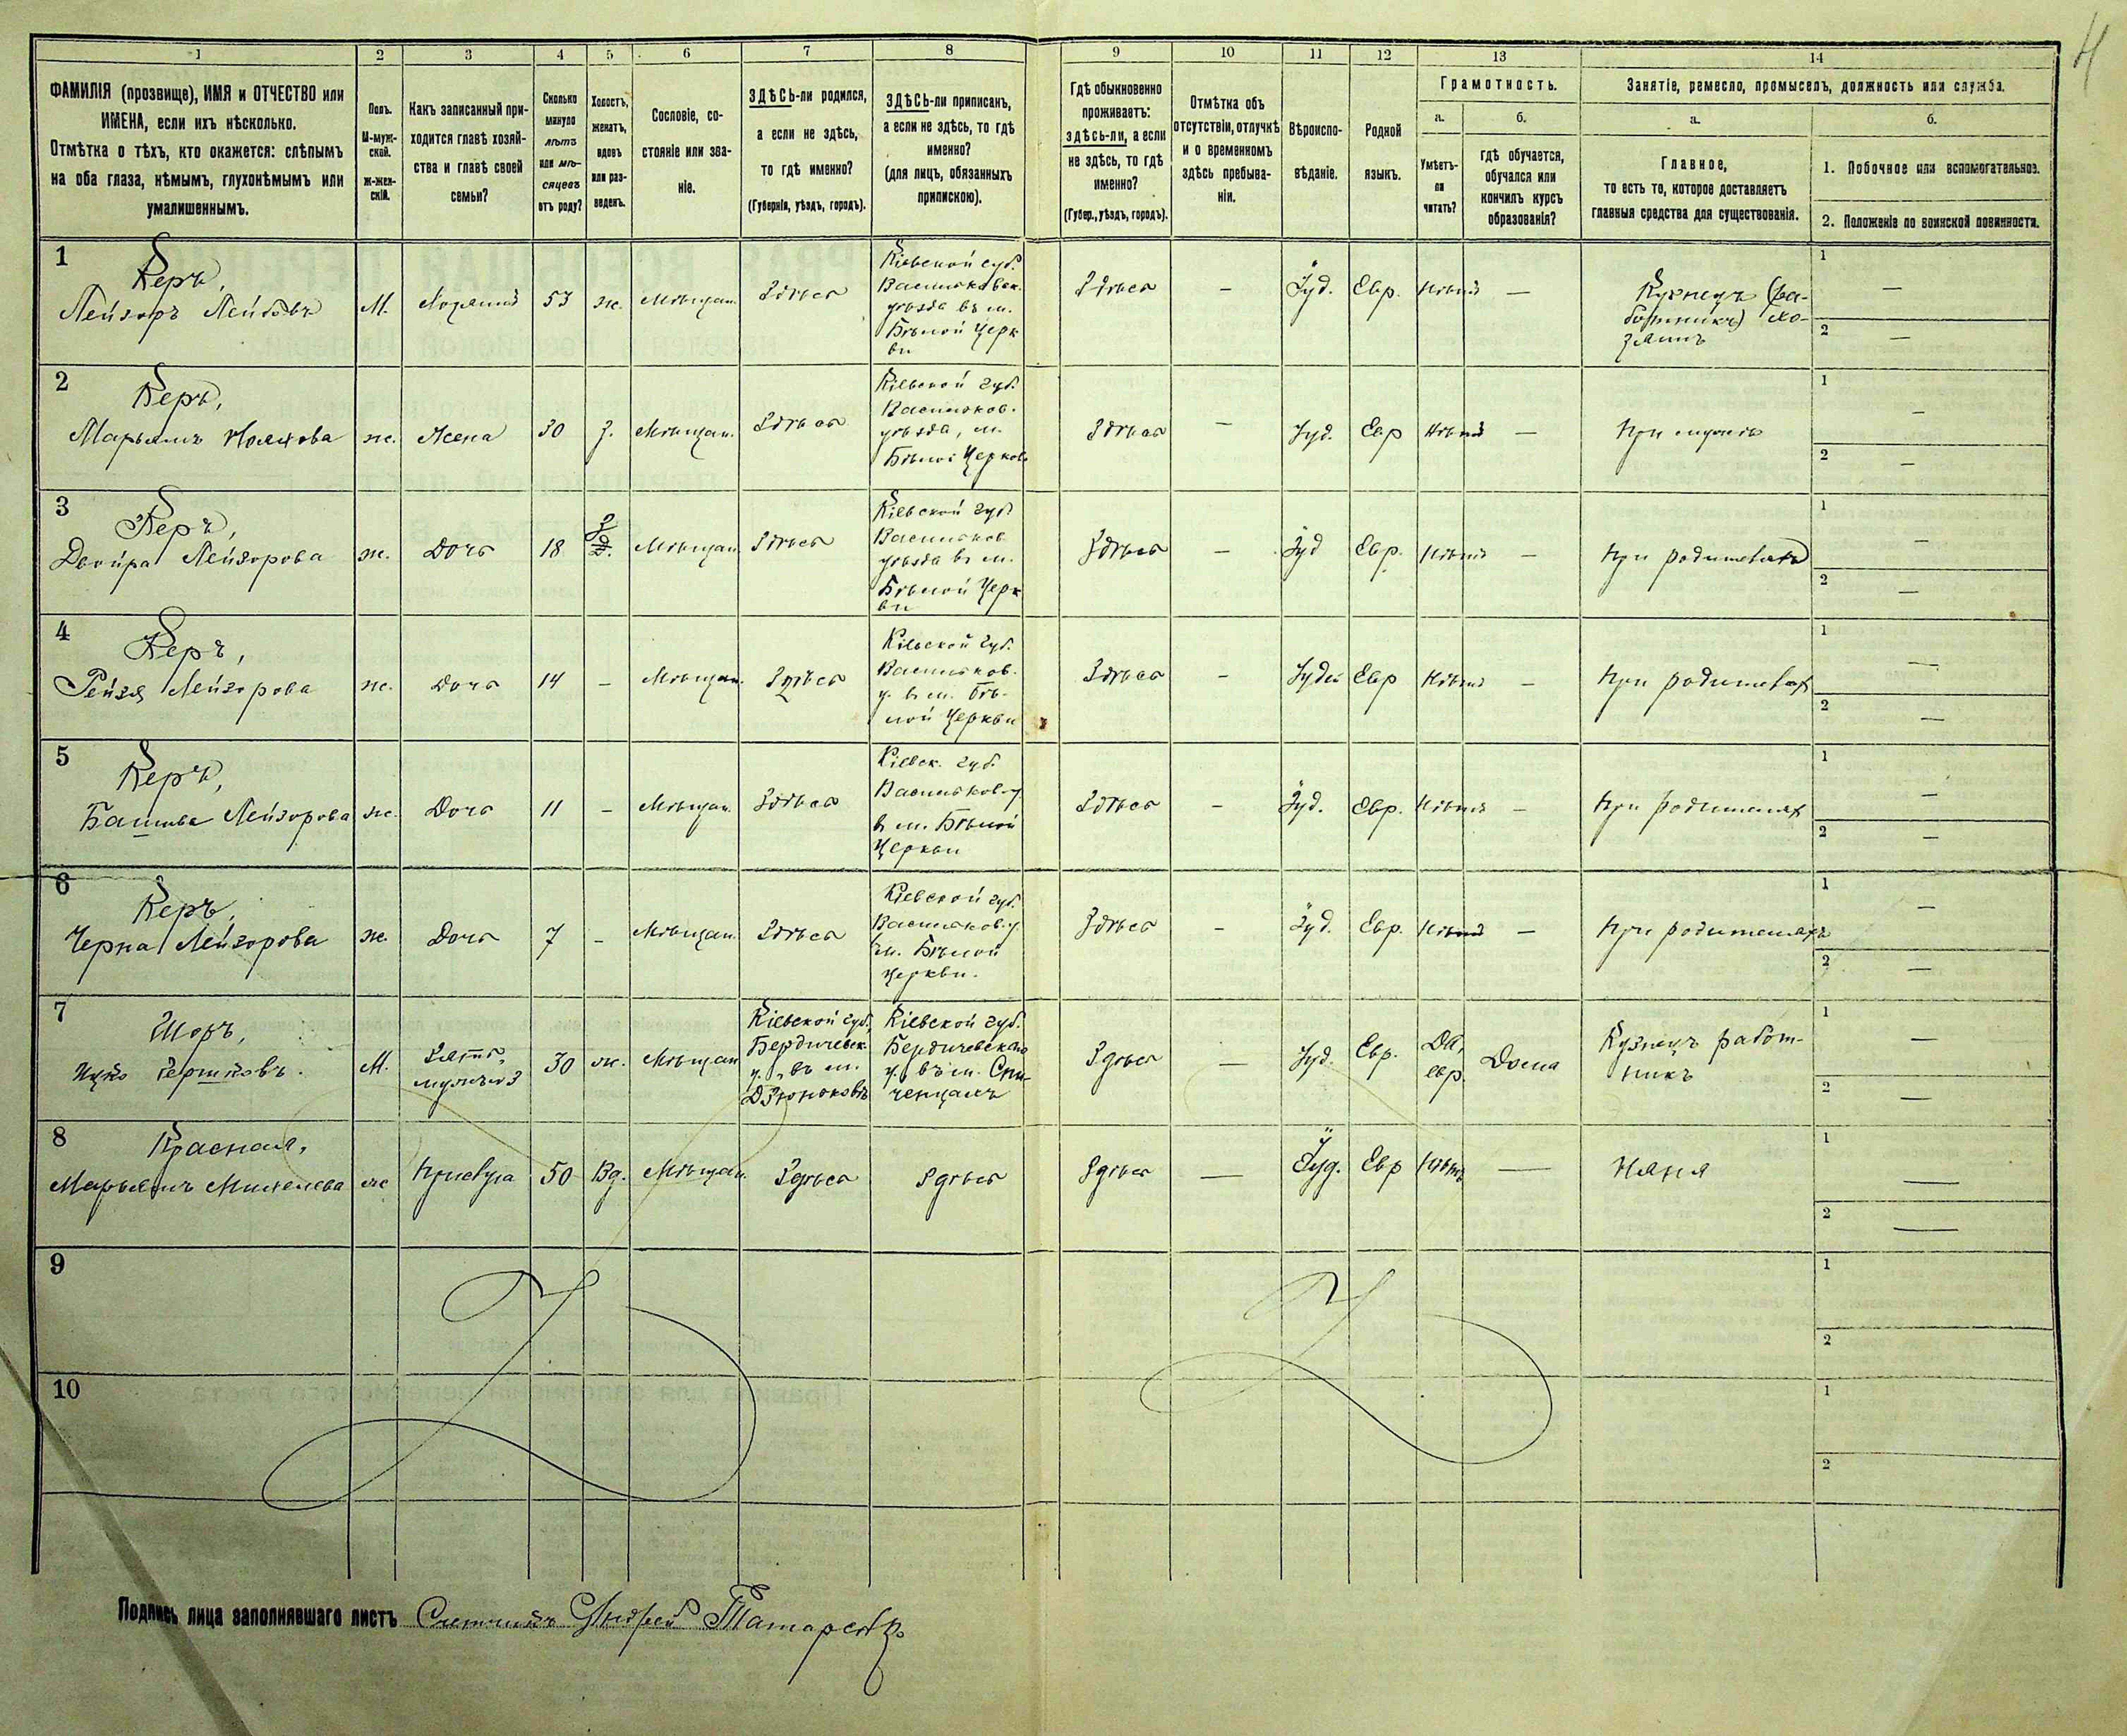 4
1 2 3 4 5 6 7 8 9 10 11 12 13 14
ФАМИЛІЯ (прозвище), ИМЯ и ОТЧЕСТВО или
ИМЕНА, если ихъ нѣсколько.
Отмѣтка о тѣхъ, кто окажется: слѣпымъ
на оба глаза, нѣмымъ, глухонѣмымъ или
умалишеннымъ.
Полъ.
М-муж-
ской.
ж-жен-
скій.
Какъ записанный при-
ходится главѣ хозяй-
ства и главѣ своей
семьи?
Сколько
минуло
лѣтъ
или мѣ-
сяцевъ
отъ роду?
Холостъ,
женатъ,
вдовъ
или раз-
веденъ.
Сословіе, со-
стояніе или зва-
ніе.
ЗДѢСЬ-ли родился,
а если не здѣсь,
то гдѣ именно?
(Губернія, уѣздъ, городъ).
ЗДѢСЬ-ли приписанъ,
а если не здѣсь, то гдѣ
именно?
(для лицъ, обязанныхъ
припискою).
Гдѣ обыкновенно
проживаетъ:
здѣсь-ли, а если
не здѣсь, то гдѣ
именно?
(Губер., уѣздъ, городъ).
Отмѣтка объ
отсутствіи, отлучкѣ
и о временномъ
здѣсь пребыва-
ніи.
Вѣроиспо-
вѣданіе.
Родной
языкъ.
Грамотность.
а.
Умѣетъ-
ли
читать?
б.
гдѣ обучается,
обучался или
кончилъ курсъ
образованія?
Занятіе, ремесло, промыселъ, должность или служба.
а.
Главное,
то есть то, которое доставляетъ
главныя средства для существованія.
б.
1. Побочное или вспомогательное.
2. Положеніе по воинской повинности.
1
Керъ,
Лейзоръ Лейбовъ
М.
Хозяинъ
53
ж.
Мѣщан.
Здѣсь
Кіевской губ.
Васильковск.
уѣзда въ м.
Бѣлой Церк
ви
Здѣсь
—
Іуд.
Евр.
Нѣтъ
—
Кузнецъ (ра-
ботникъ) хо-
зяинъ
1 —
2 —
2
Керъ,
Марьямъ
ж.
Жена
30
з.
Мѣщан.
Здѣсь
Кіевской губ.
Васильков.
уѣзда, м.
Бѣлой Церков
Здѣсь
—
Іуд.
Евр
Нѣтъ
—
При мужѣ
1 —
2 —
3
Керъ,
Двойра Лейзорова
ж.
Дочь
18
Мѣщан.
Здѣсь
Кіевской губ.
Васильков.
уѣзда въ м.
Бѣлой Церк
ви
Здѣсь
—
Іуд
Евр.
Нѣтъ
—
При родителяхъ
1 —
2 —
4
Керъ,
Рейзя Лейзорова
ж.
Дочь
14
—
Мѣщан.
Здѣсь
Кіевской губ.
Васильков.
у. в м. Бѣ-
лой Церкви
Здѣсь
—
Іудей
Евр
Нѣтъ
—
При родителях
1 —
2 —
5
Керъ,
Башива Лейзорова
ж.
Дочь
11
—
Мѣщан.
Здѣсь
Кіевск. губ.
Васильков. у
в м. Бѣлой
Церкви
Здѣсь
—
Іуд.
Евр.
Нѣтъ
—
При родителях
1 —
2 —
6
Керъ,
Черна Лейзорова
ж.
Дочь
7
—
Мѣщан.
Здѣсь
Кіевской губ.
Васильков. у
м. Бѣлой
Церкви.
Здѣсь
—
Іуд.
Евр.
Нѣтъ
—
При родителяхъ
1 —
2 —
7
Шоръ,
Ицко Гершковъ.
М.
Зять,
30
ж.
Мѣщан
Кіевской губ.,
Бердичевск.
у., въ м.
Дзюньковѣ
Кіевской губ.
Бердичевскаго
у. въ м. Спи-
ченцахъ
Здѣсь
—
Іуд.
Евр.
Да,
евр.
Дома
Кузнецъ работ-
никъ
1 —
2 —
8
Красная,
Марьямъ Михелева
ж
Прислуга
50
Вд.
Мѣщан.
Здѣсь
Здѣсь
Здѣсь
—
Іуд.
Евр
Нѣтъ
—
Няня
1 —
2 —
9
1
2
10
1
2
Подпись лица заполнявшаго листъ Счетчикъ Андрей